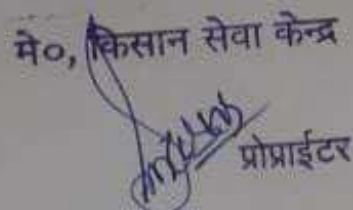 मे०, किसान सेवा केन्द्र
प्रोप्राईटर